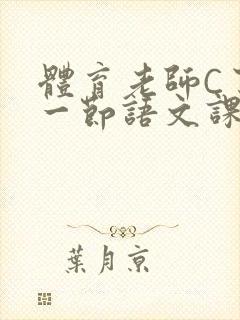 體育老師C
一節語文課
葉月京